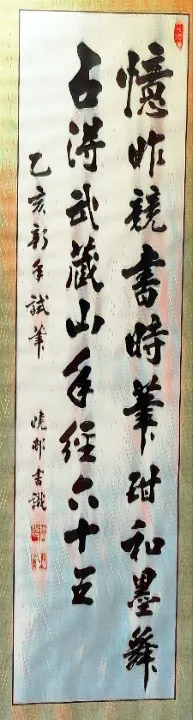 憶昨競書時筆酣和墨舞
占得武蔵山年経六十五
乙亥新年試筆 曉邨書識